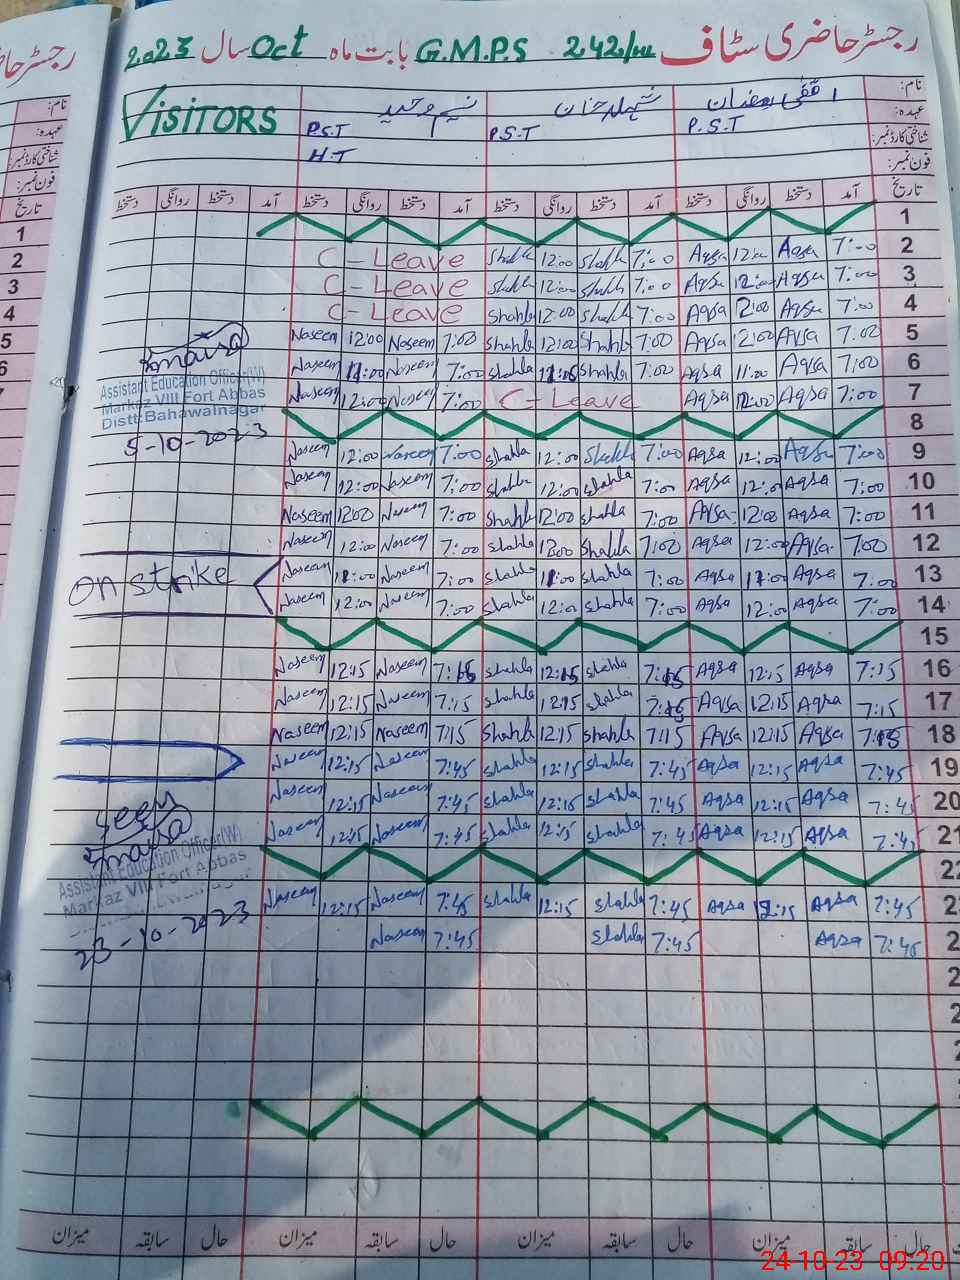 رجسٹر حاضری سٹاف 242/ G.M.P.S بابت ماہ Oct سال 2023
رجسٹر حا
نام:
VISITORS نسیم وحید شہلا خان اقصٰی رمضان
عہدہ: P.S.T P.S.T P.S.T
شناختی کارڈ نمبر: H.T
فون نمبر:
تاریخ آمد دستخط روانگی دستخط آمد دستخط روانگی دستخط آمد دستخط روانگی دستخط آمد دستخط روانگی دستخط
1
C - Leave Shahla 12:00 Shahla 7:00 Aqsa 12:00 Aqsa 7:00 2
C - Leave Shahla 12:00 Shahla 7:00 Aqsa 12:00 Aqsa 7:00 3
C - Leave Shahla 12:00 Shahla 7:00 Aqsa 12:00 Aqsa 7:00 4
Naseem 12:00 Naseem 7:00 Shahla 12:00 Shahla 7:00 Aqsa 12:00 Aqsa 7:00 5
Naseem 11:00 Naseem 7:00 Shahla 11:00 Shahla 7:00 Aqsa 11:00 Aqsa 7:00 6
Naseem 12:00 Naseem 7:00 C - Leave Aqsa 12:00 Aqsa 7:00 7
Assistant Education Officer(W)
Markaz VIII Fort Abbas
Distt:Bahawalnagar
5-10-2023
8
Naseem 12:00 Naseem 7:00 Shahla 12:00 Shahla 7:00 Aqsa 12:00 Aqsa 7:00 9
Naseem 12:00 Naseem 7:00 Shahla 12:00 Shahla 7:00 Aqsa 12:00 Aqsa 7:00 10
Naseem 12:00 Naseem 7:00 Shahla 12:00 Shahla 7:00 Aqsa 12:00 Aqsa 7:00 11
Naseem 12:00 Naseem 7:00 Shahla 12:00 Shahla 7:00 Aqsa 12:00 Aqsa 7:00 12
on strike Naseem 11:00 Naseem 7:00 Shahla 11:00 Shahla 7:00 Aqsa 11:00 Aqsa 7:00 13
Naseem 12:00 Naseem 7:00 Shahla 12:00 Shahla 7:00 Aqsa 12:00 Aqsa 7:00 14
15
Naseem 12:15 Naseem 7:15 Shahla 12:15 Shahla 7:15 Aqsa 12:15 Aqsa 7:15 16
Naseem 12:15 Naseem 7:15 Shahla 12:15 Shahla 7:15 Aqsa 12:15 Aqsa 7:15 17
Naseem 12:15 Naseem 7:15 Shahla 12:15 Shahla 7:15 Aqsa 12:15 Aqsa 7:15 18
Naseem 12:15 Naseem 7:45 Shahla 12:15 Shahla 7:45 Aqsa 12:15 Aqsa 7:45 19
Naseem 12:15 Naseem 7:45 Shahla 12:15 Shahla 7:45 Aqsa 12:15 Aqsa 7:45 20
Naseem 12:15 Naseem 7:45 Shahla 12:15 Shahla 7:45 Aqsa 12:15 Aqsa 7:45 21
Seen
Assistant Education Officer(W)
Markaz VIII Fort Abbas
23-10-2023
22
Naseem 12:15 Naseem 7:45 Shahla 12:15 Shahla 7:45 Aqsa 12:15 Aqsa 7:45 2
Naseem 7:45 Shahla 7:45 Aqsa 7:45 2
2
2
2
حال سابقہ میزان حال سابقہ میزان حال سابقہ میزان حال سابقہ میزان
24-10-23 09:20